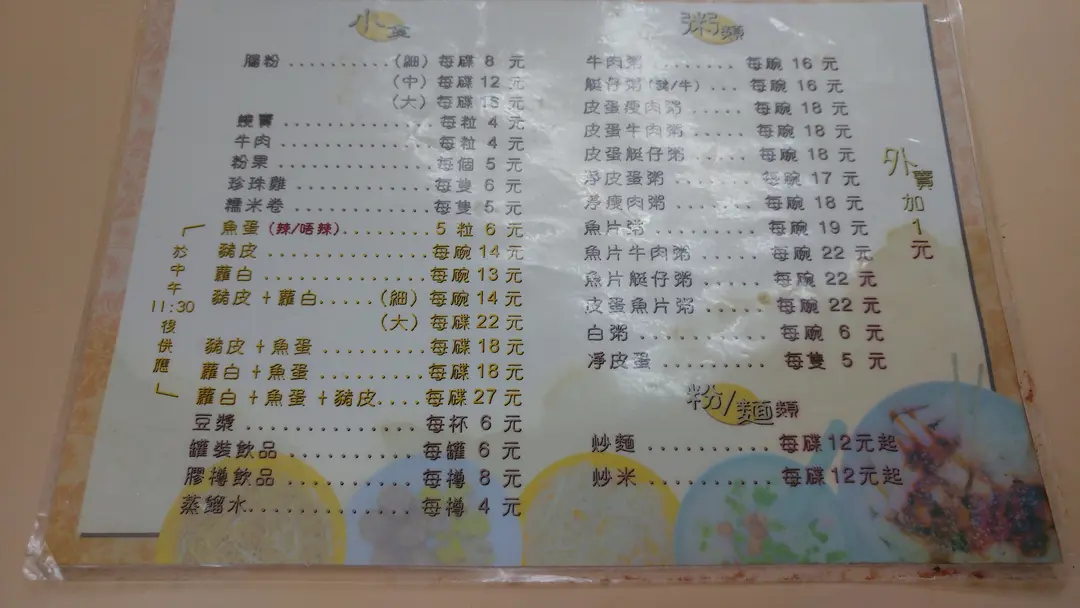 小食
腸粉..........(細) 每碟 8 元
(中) 每碟 12 元
(大) 每碟 15 元
燒賣................每粒 4 元
牛肉................每粒 4 元
粉果................每個 5 元
珍珠雞..............每隻 6 元
糯米卷..............每隻 5 元
魚蛋 (辣/唔辣).........5 粒 6 元
豬皮................每碗 14 元
蘿白................每碗 13 元
豬皮+蘿白.....(細) 每碗 14 元
(大) 每碟 22 元
豬皮+魚蛋.........每碟 18 元
蘿白+魚蛋.........每碟 18 元
蘿白+魚蛋+豬皮....每碟 27 元
於中午11:30後供應
豆漿..............每杯 6 元
罐裝飲品...........每罐 6 元
膠樽飲品...........每樽 8 元
蒸餾水.............每樽 4 元
粥類
牛肉粥........每碗 16 元
艇仔粥(/牛)...每碗 16 元
皮蛋瘦肉粥.....每碗 18 元
皮蛋牛肉粥.....每碗 18 元
皮蛋艇仔粥.....每碗 18 元
淨皮蛋粥.......每碗 17 元
淨瘦肉粥.......每碗 18 元
魚片粥.........每碗 19 元
魚片牛肉粥.....每碗 22 元
魚片艇仔粥.....每碗 22 元
皮蛋魚片粥.....每碗 22 元
白粥..........每碗 6 元
淨皮蛋.........每隻 5 元
外賣加1元
粉/麵類
炒麵..........每碟12元起
炒米..........每碟12元起